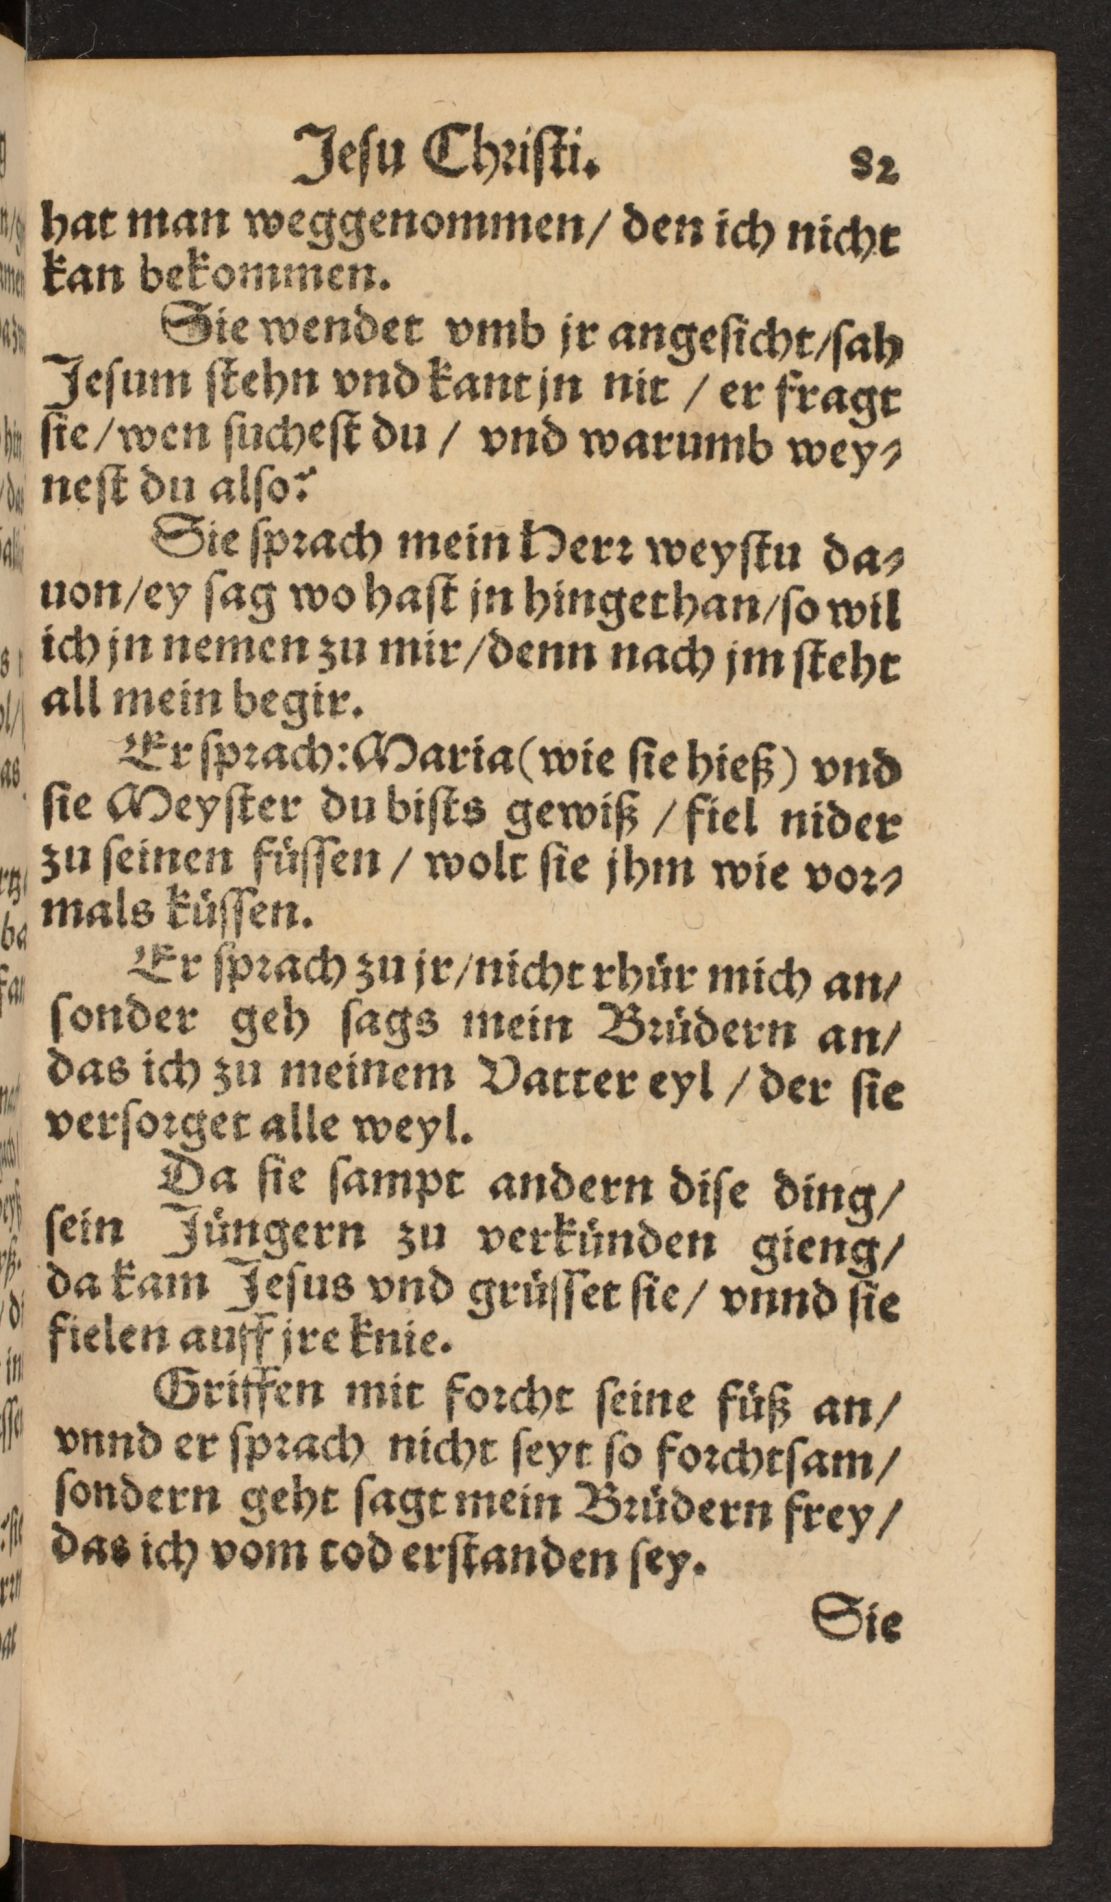 Jeſu Chriſti. 82
hat man weggenommen/ den ich nicht
kan bekommen.
Sie wendet vmb jr angeſicht/ſah
Jeſum ſtehn vnd kant jn nit / er fragt
ſie/wen ſucheſt du / vnd warumb wey⸗
neſt du alſo?
Sie ſprach mein Herr weyſtu da⸗
uon/ey ſag wo haſt jn hingethan/ſo wil
ich jn nemen zu mir/denn nach jm ſteht
all mein begir.
Er ſprach: Maria (wie ſie hieß) vnd
ſie Meyſter du biſts gewiß / fiel nider
zu ſeinen füſſen / wolt ſie jhm wie vor⸗
mals küſſen.
Er ſprach zu jr/nicht rhür mich an/
ſonder geh ſags mein Brüdern an/
das ich zu meinem Vatter eyl / der ſie
verſorget alle weyl.
Da ſie ſampt andern diſe ding/
ſein Jüngern zu verkünden gieng/
da kam Jeſus vnd grüſſet ſie/ vnnd ſie
fielen auff jre knie.
Griffen mit forcht ſeine füß an/
vnnd er ſprach nicht ſeyt ſo forchtſam/
ſondern geht ſagt mein Brüdern frey/
das ich vom tod erſtanden ſey.
Sie